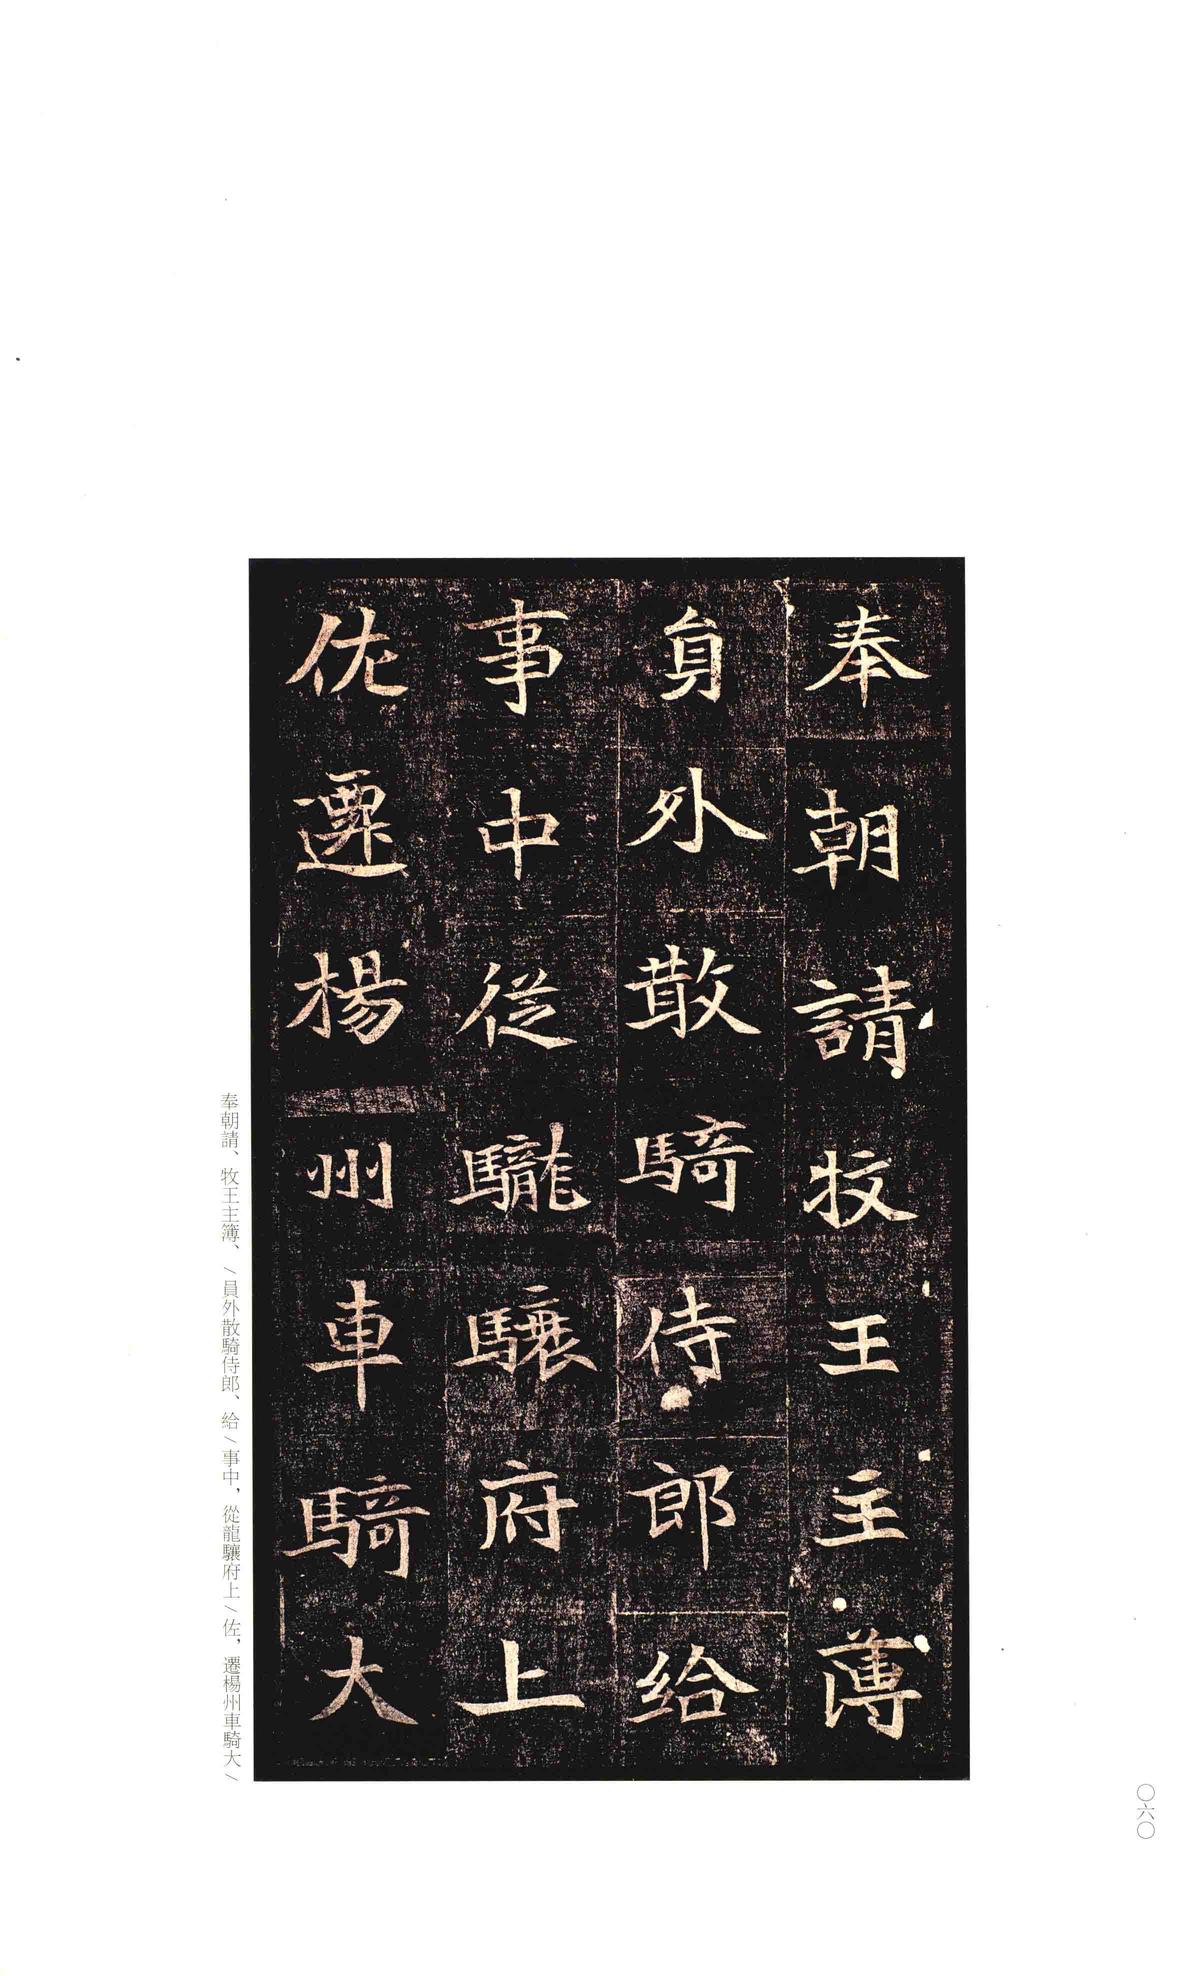 奉朝請牧王主薄
員外散騎侍郎給
事中從驡驤府上
佐遷楊州車騎大
奉朝請、牧王主簿、\員外散騎侍郎、給\事中，從龍驤府上\佐，遷楊州車騎大\
〇六〇